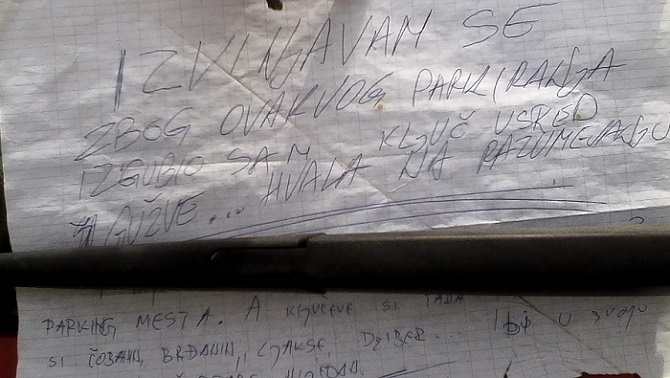 IZVINJAVAM SE
ZBOG OVAKVOG PARKIRANJA
IZGUBIO SAM KLJUČ USRED
GUŽVE... HVALA NA RAZUMEVANJU
PARKING MESTA. A KLJUČEVE SI TADA
SI ČOBANIN, BRĐANIN, DŽIBER... IDI U SVOJU